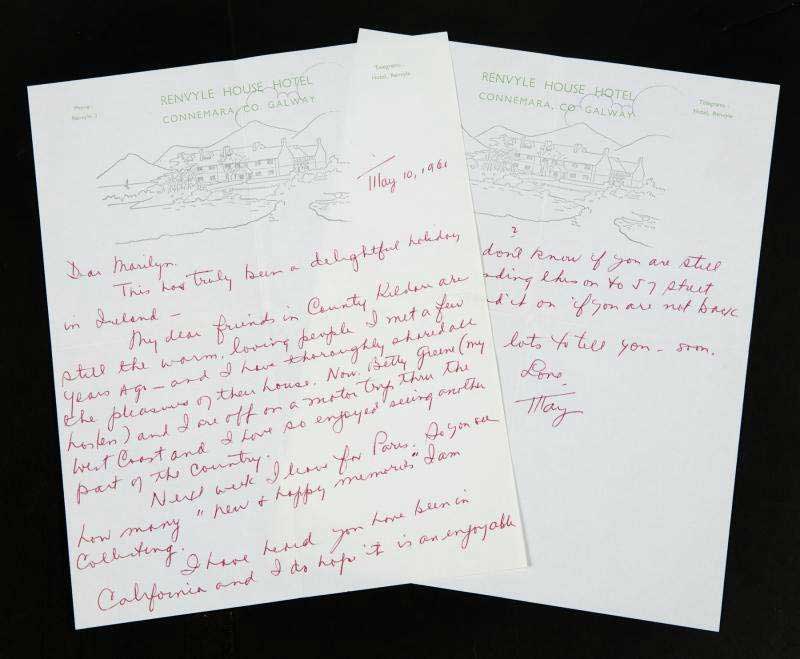 Phone :
Renvyle 3
RENVYLE HOUSE HOTEL
CONNEMARA, CO. GALWAY
Telegrams :
Hotel, Renvyle
May 10, 1961
Dear Marilyn.
This has truly been a delightful holiday
in Ireland —
My dear friends in County Kildare are
still the warm, loving people I met a few
years ago — and I have thoroughly shared all
the pleasures of their house. Now Betty Greene (my
hostess) and I are off on a motor trip thru the
West Coast and I have so enjoyed seeing another
part of the country.
Next week I leave for Paris. So you see
how many "new & happy memories" I am
collecting.
I have heard you have been in
California and I do hope it is an enjoyable
RENVYLE HOUSE HOTEL
CONNEMARA, CO. GALWAY
Telegrams :
Hotel, Renvyle
?
don't know if you are still
this on to 57 street
it on if you are not back
lots to tell you — soon.
Love,
May